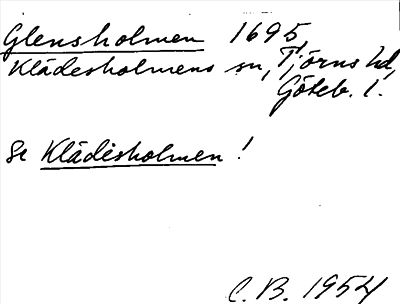 Glensholmen 1695,
Klädesholmens sn, Tjörns hd,
Göteb. l.
Se Klädesholmen!
C.B. 1954